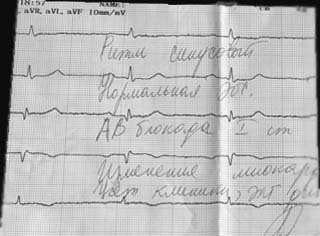 18:57 NAME:
, aVR, aVL, aVF 10mm/mV
Ритм синусовый
Нормальная ЭОС.
АВ блокада I ст
Изменения миокарда
клиники, ЭКГ